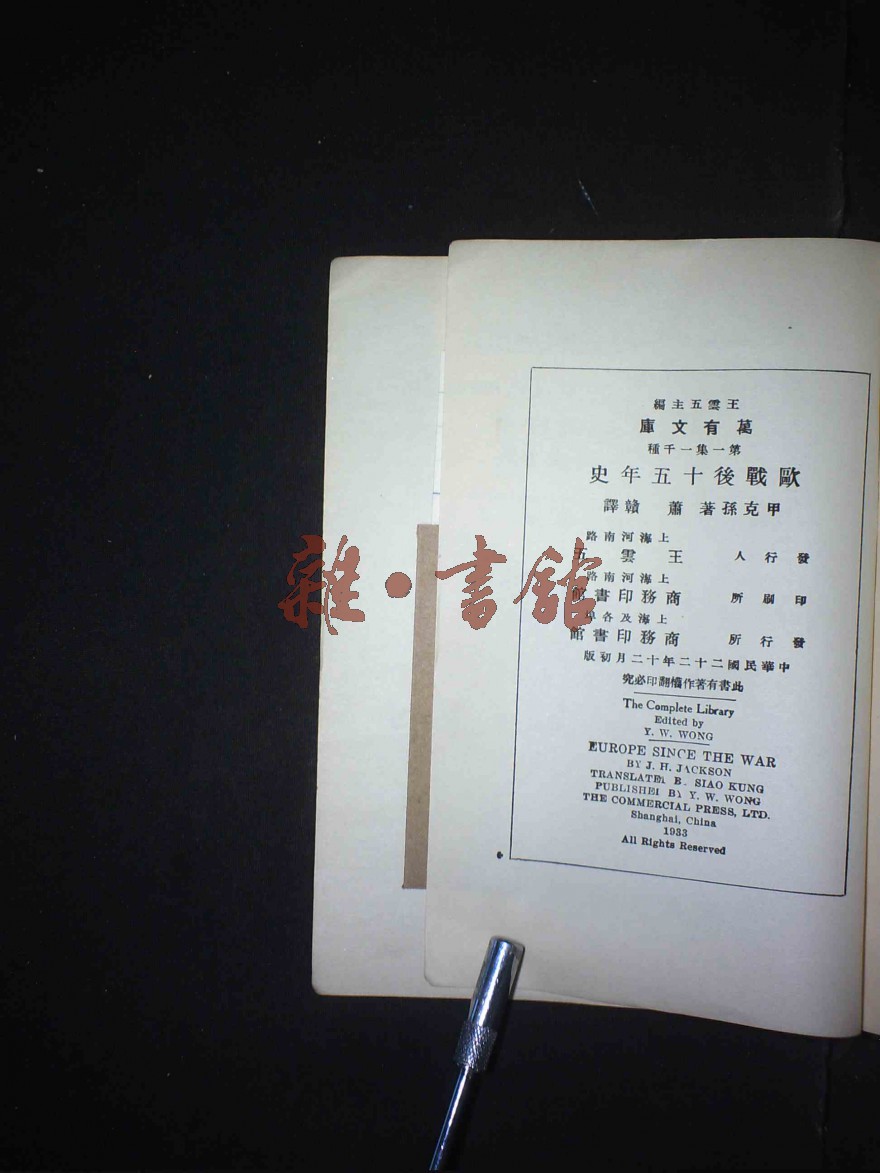 王雲五主編
萬有文庫
第一集一千種
歐戰後十五年史
甲克孫著 蕭贛譯
上海河南路
發行人 王雲五
上海河南路
印刷所 商務印書館
上海及各埠
發行所 商務印書館
中華民國二十二年十二月初版
此書有著作權翻印必究
The Complete Library
Edited by
Y. W. WONG
EUROPE SINCE THE WAR
BY J. H. JACKSON
TRANSLATE B SIAO KUNG
PUBLISHE B Y. W. WONG
THE COMMERCIAL PRESS, LTD.
Shanghai, China
1933
All Rights Reserved
雜·書館